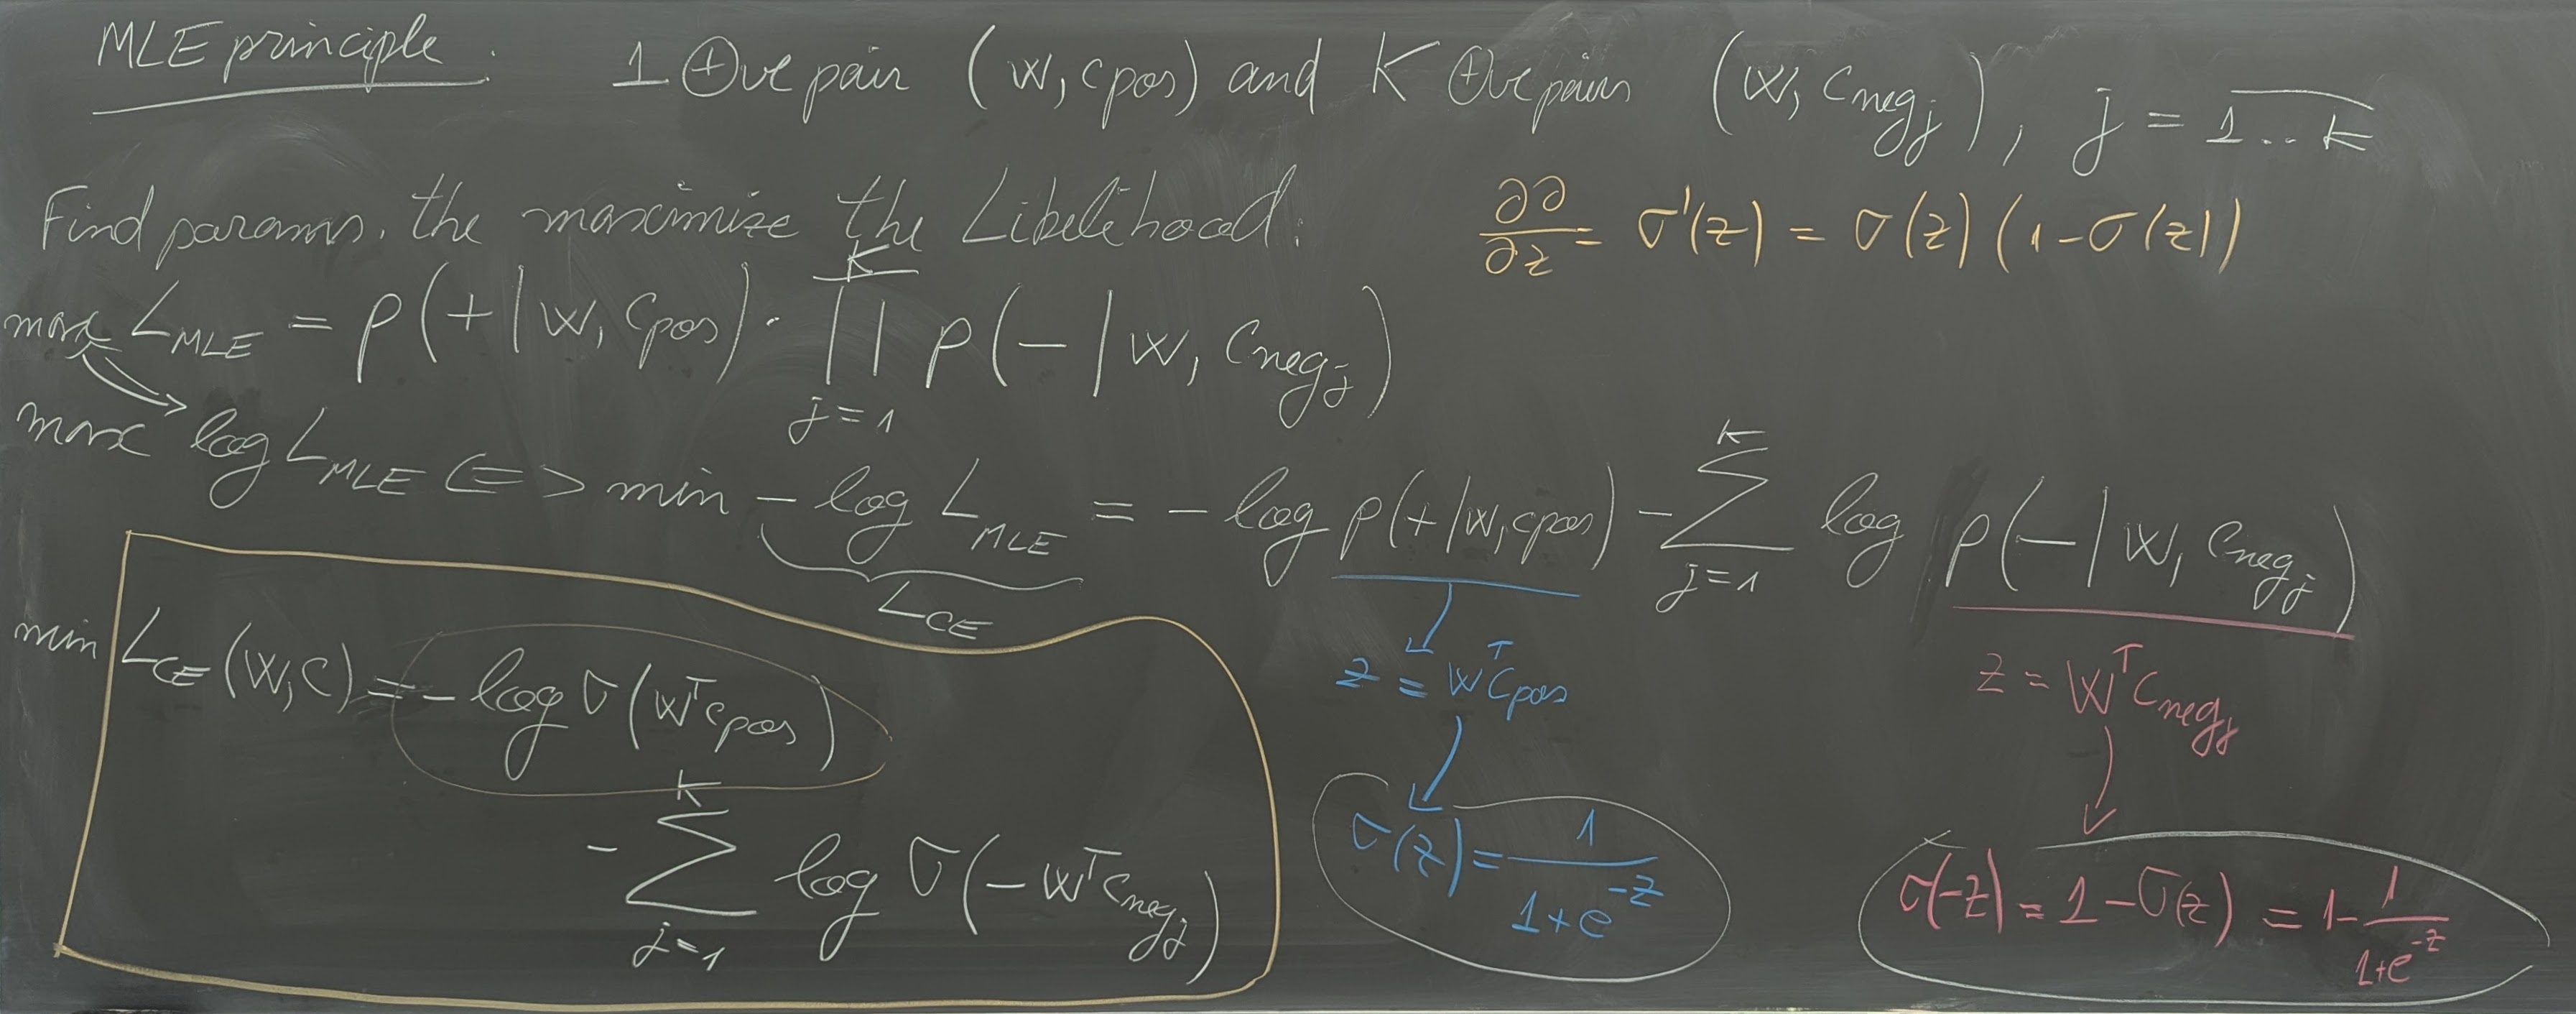 MLE principle. 1 ⊕ve pair (w, cpos) and K ⊕ve pairs (w, c_neg_j), j = 1...k
Find params. the maximize the Likelihood.
∂∂/∂z = σ'(z) = σ(z)(1-σ(z))
max L_MLE = p(+|w, cpos) · ∏_{j=1}^{K} p(-|w, c_neg_j)
max log L_MLE <=> min - log L_MLE = - log p(+|w, cpos) - Σ_{j=1}^{K} log p(-|w, c_neg_j)
L_CE
min L_CE(w,c) = - log σ(w^T cpos)
- Σ_{j=1}^{K} log σ(-w^T c_neg_j)
z = w^T cpos
σ(z) = 1/(1+e^{-z})
z = w^T c_neg_j
σ(-z) = 1-σ(z) = 1 - 1/(1+e^{-z})